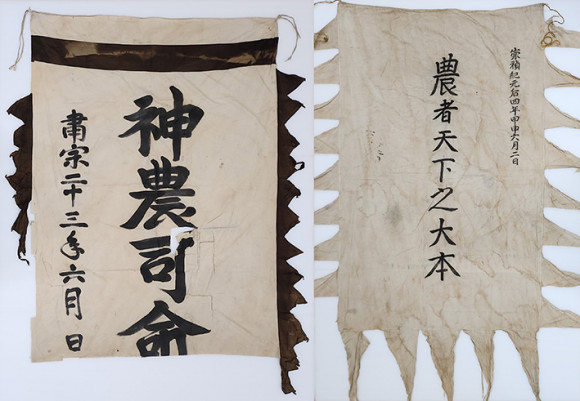 神農司命
肅宗二十三年六月 日
崇禎紀元后四年甲申六月二日
農者天下之大本